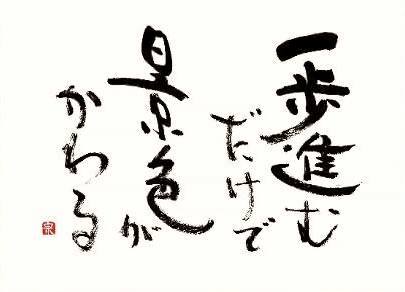 一歩進む
だけで
景色が
かわる